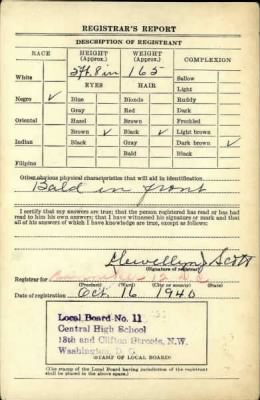 REGISTRAR'S REPORT
DESCRIPTION OF REGISTRANT
RACE HEIGHT (Approx.) WEIGHT (Approx.) COMPLEXION
5 ft. 8 in 165
White Sallow
EYES HAIR Light
Negro ✓ Blue Blonde Ruddy
Gray Red Dark
Oriental Hazel Brown Freckled
Brown ✓ Black ✓ Light brown
Indian Black Gray Dark brown ✓
Bald Black
Filipino
Other obvious physical characteristics that will aid in identification
Bald in front
I certify that my answers are true; that the person registered has read or has had
read to him his own answers; that I have witnessed his signature or mark and that
all of his answers of which I have knowledge are true, except as follows:
Llewellyn Scott
(Signature of registrar)
Registrar for
(Precinct) (Ward) (City or county) (State)
Date of registration Oct. 16 1940
Local Board No. 11
Central High School
13th and Clifton Streets, N.W.
Washington, D. C.
(STAMP OF LOCAL BOARD)
(The stamp of the Local Board having jurisdiction of the registrant
shall be placed in the above space.)